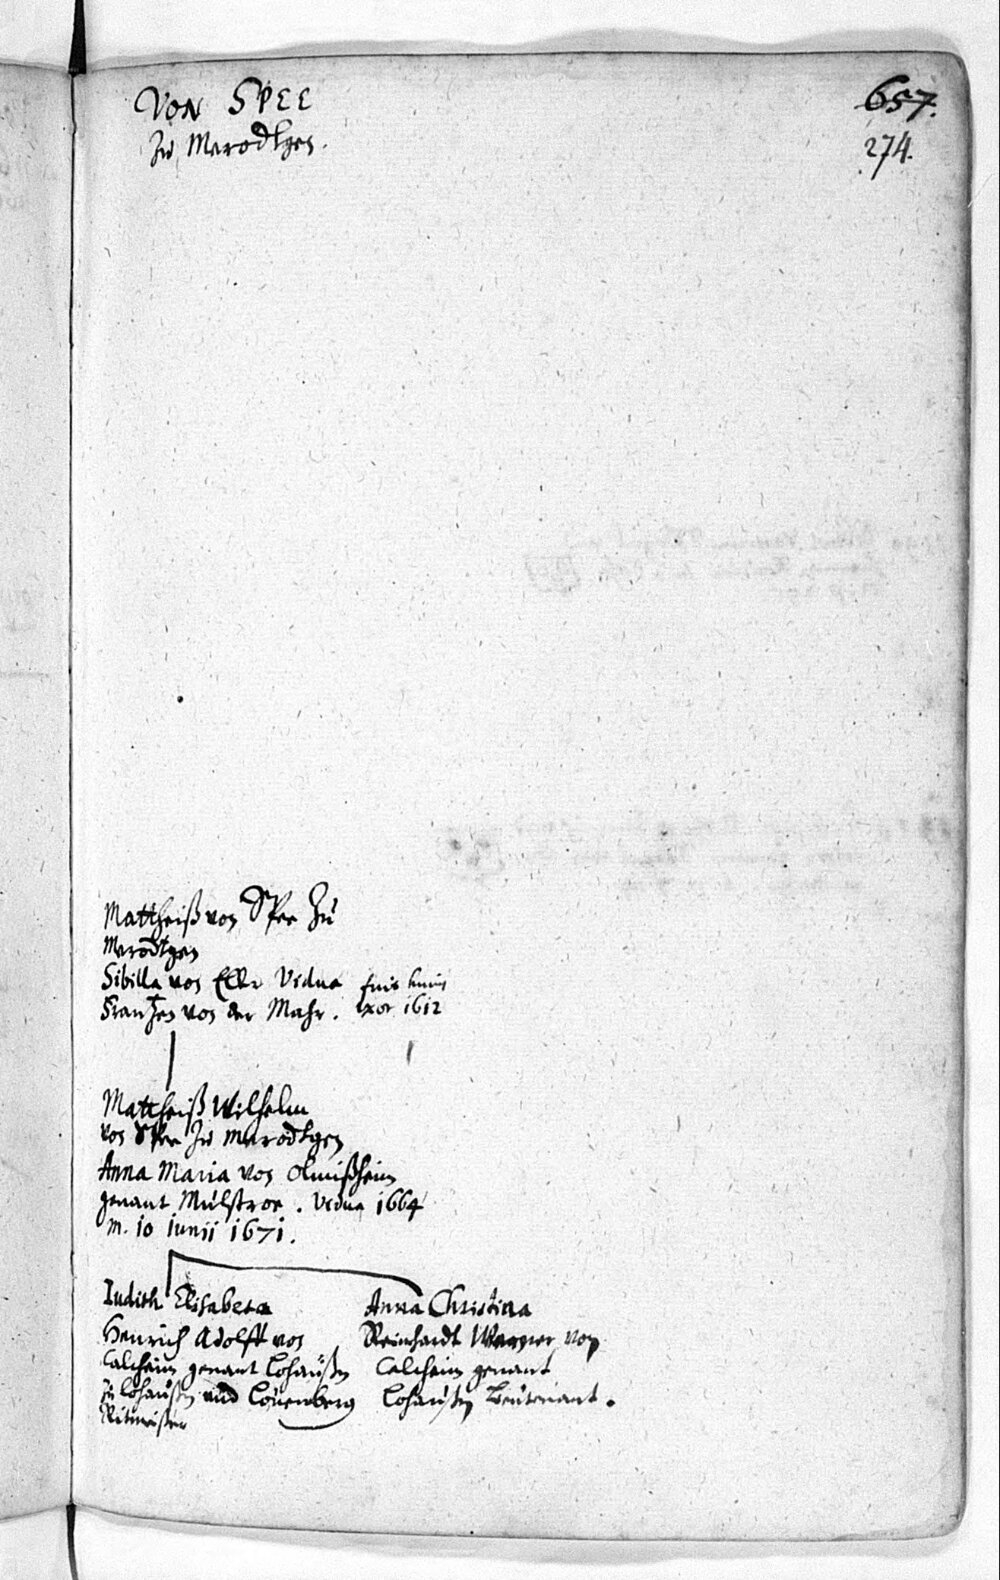 VON SPEE
Zu Merodtgen.
657.
274.
Mattheiß von Spee Zu
Merodtgen
Sibilla von Eller Vidua
Frantzen von der Mahr. uxor 1612
Mattheiß Wilhelm
von Spee Zu Merodtgen
Anna Maria von Olmißheim
genant Mülstroe. Vidua 1664
m. 10 Iunii 1671.
Iudith Elisabeta
Henrich Adolff von
Calcheim genant Lohaußen
zu Lohaußen und Löuenberg
Ritmeister
Anna Christina
Reinhardt Werner von
Calcheim genant
Lohaußen Leutenant.